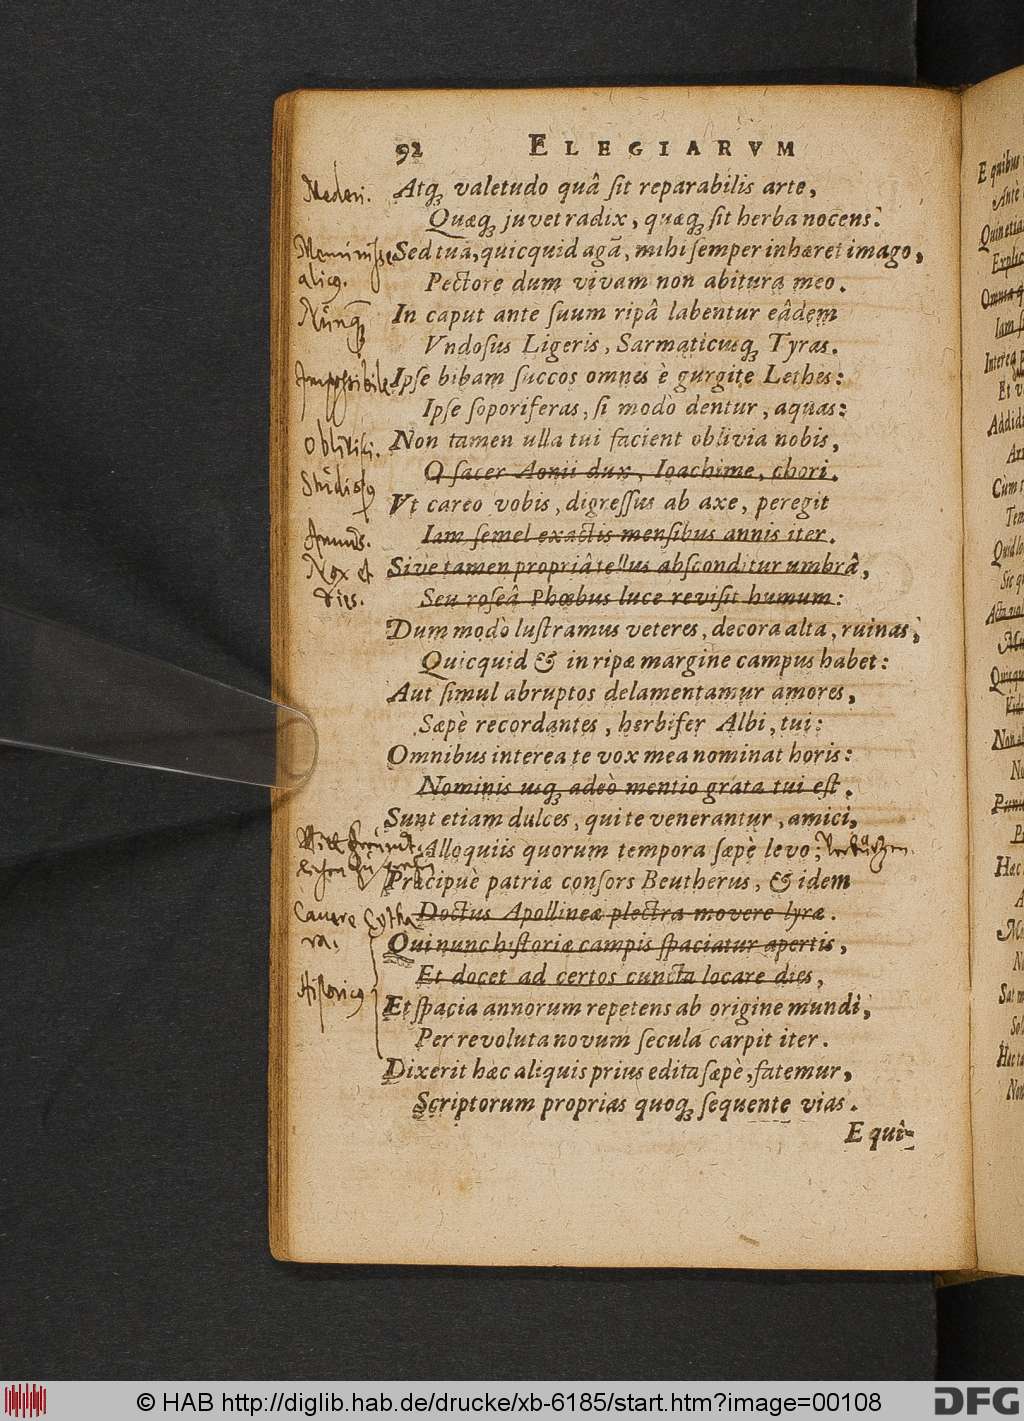 92 ELEGIARVM
Mederi. Atq; valetudo quâ ſit reparabilis arte,
Quæq; juvet radix, quæq; ſit herba nocens.
Meminiſse Sed tuā, quicquid agā, mihi ſemper inhæret imago,
aliq. Pectore dum vivam non abitura meo.
Nunq; In caput ante ſuum ripâ labentur eâdem
Vndoſus Ligeris, Sarmaticuſq; Tyras.
Impoſsibile Ipſe bibam ſuccos omnes è gurgite Lethes:
Ipſe ſoporiferas, ſi modò dentur, aquas:
Obliviſci. Non tamen ulla tui facient oblivia nobis,
O ſacer Aonii dux, Ioachime, chori.
Vt careo vobis, digreſſus ab axe, peregit
Annus. Iam ſemel exactis menſibus annis iter.
Nox et Sive tamen propriâ tellus abſconditur umbrâ,
dies. Seu roſeâ Phœbus luce reviſit humum:
Dum modò luſtramus veteres, decora alta, ruinas,
Quicquid & in ripæ margine campus habet:
Aut ſimul abruptos delamentamur amores,
Sæpè recordantes, herbifer Albi, tui:
Omnibus interea te vox mea nominat horis:
Nominis uſq; adeò mentio grata tui eſt.
Sunt etiam dulces, qui te venerantur, amici,
Alloquiis quorum tempora ſæpè levo;
Præcipuè patriæ conſors Beutherus, & idem
Canere Cytha Doctus Apollineæ plectra movere lyræ.
ra. Qui nunc hiſtoriæ campis ſpaciatur apertis,
Et docet ad certos cuncta locare dies,
Hiſtoricus Et ſpacia annorum repetens ab origine mundi,
Per revoluta novum ſecula carpit iter.
Dixerit hæc aliquis prius edita ſæpè, fatemur,
Scriptorum proprias quoq; ſequente vias.
E qui-
E quibus
Antè
Quin etiam
Explic
Omnia q
Iam ſ
Interea p
Et v
Addid
Cum t
Tem
Quid lo
Sic q
Acta vol
Quicqu
Non
Hæc
Sat m
Sol
Hæc ta
Non
© HAB http://diglib.hab.de/drucke/xb-6185/start.htm?image=00108
DFG